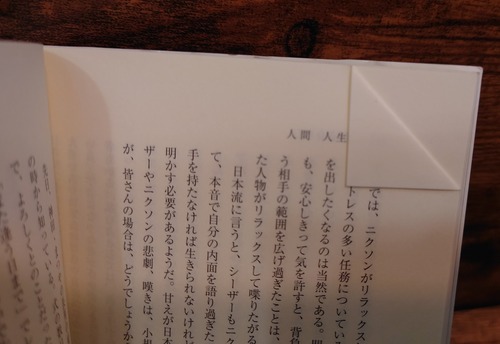 人間　人生
では、ニクソンがリラックス
トレスの多い任務についてい
を出したくなるのは当然である。
も、安心しきって気を許すと、背
う相手の範囲を広げ過ぎたことは、
た人物がリラックスして喋りたがる
日本流に言うと、シーザーもニク
て、本音で自分の内面を語り過ぎた
手を持たなければ生きられないけれど
明かす必要があるようだ。甘えが日本
ザーやニクソンの悲劇、嘆きは、小
が、皆さんの場合は、どうでしょうか
の時から知っている、
で、よろしくとのことだった